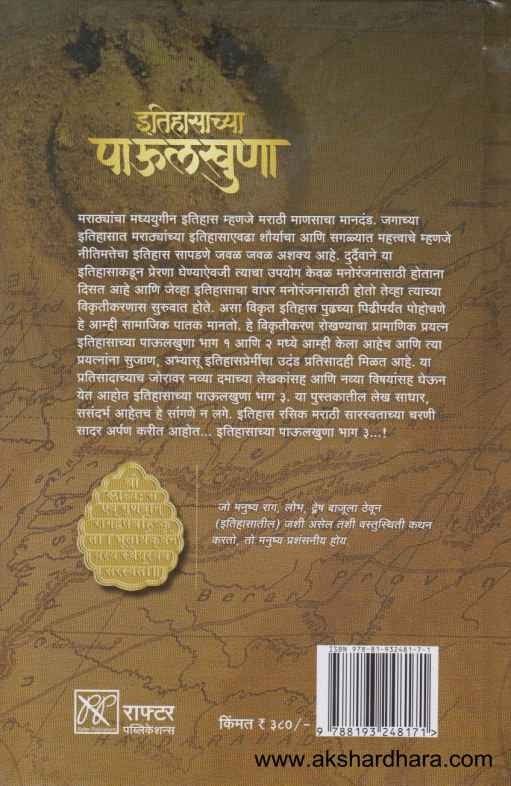 इतिहासाच्या
पाऊलखुणा
मराठ्यांचा मध्ययुगीन इतिहास म्हणजे मराठी माणसाचा मानदंड. जगाच्या
इतिहासात मराठ्यांच्या इतिहासाएवढा शौर्याचा आणि सगळ्यात महत्त्वाचे म्हणजे
नीतिमत्तेचा इतिहास सापडणे जवळ जवळ अशक्य आहे. दुर्दैवाने या
इतिहासाकडून प्रेरणा घेण्याऐवजी त्याचा उपयोग केवळ मनोरंजनासाठी होताना
दिसत आहे आणि जेव्हा इतिहासाचा वापर मनोरंजनासाठी होतो तेव्हा त्याच्या
विकृतीकरणास सुरुवात होते. असा विकृत इतिहास पुढच्या पिढीपर्यंत पोहोचणे
हे आम्ही सामाजिक पातक मानतो. हे विकृतीकरण रोखण्याचा प्रामाणिक प्रयत्न
इतिहासाच्या पाऊलखुणा भाग १ आणि २ मध्ये आम्ही केला आहेच आणि त्या
प्रयत्नांना सुजाण, अभ्यासू इतिहासप्रेमींचा उदंड प्रतिसादही मिळत आहे. या
प्रतिसादाच्याच जोरावर नव्या दमाच्या लेखकांसह आणि नव्या विषयांसह घेऊन
येत आहोत इतिहासाच्या पाऊलखुणा भाग ३. या पुस्तकातील लेख साधार,
ससंदर्भ आहेतच हे सांगणे न लगे. इतिहास रसिक मराठी सारस्वताच्या चरणी
सादर अर्पण करीत आहोत... इतिहासाच्या पाऊलखुणा भाग ३...!
जो मनुष्य राग, लोभ, द्वेष बाजूला ठेवून
(इतिहासातील) जशी असेल तशी वस्तुस्थिती कथन
करतो, तो मनुष्य प्रशंसनीय होय
Berar
ISBN 978-81-932481-7-1
9 788193 248171 >
राफ्टर
पब्लिकेशन्स
किंमत ₹ ३८०/-
www.akshardhara.com